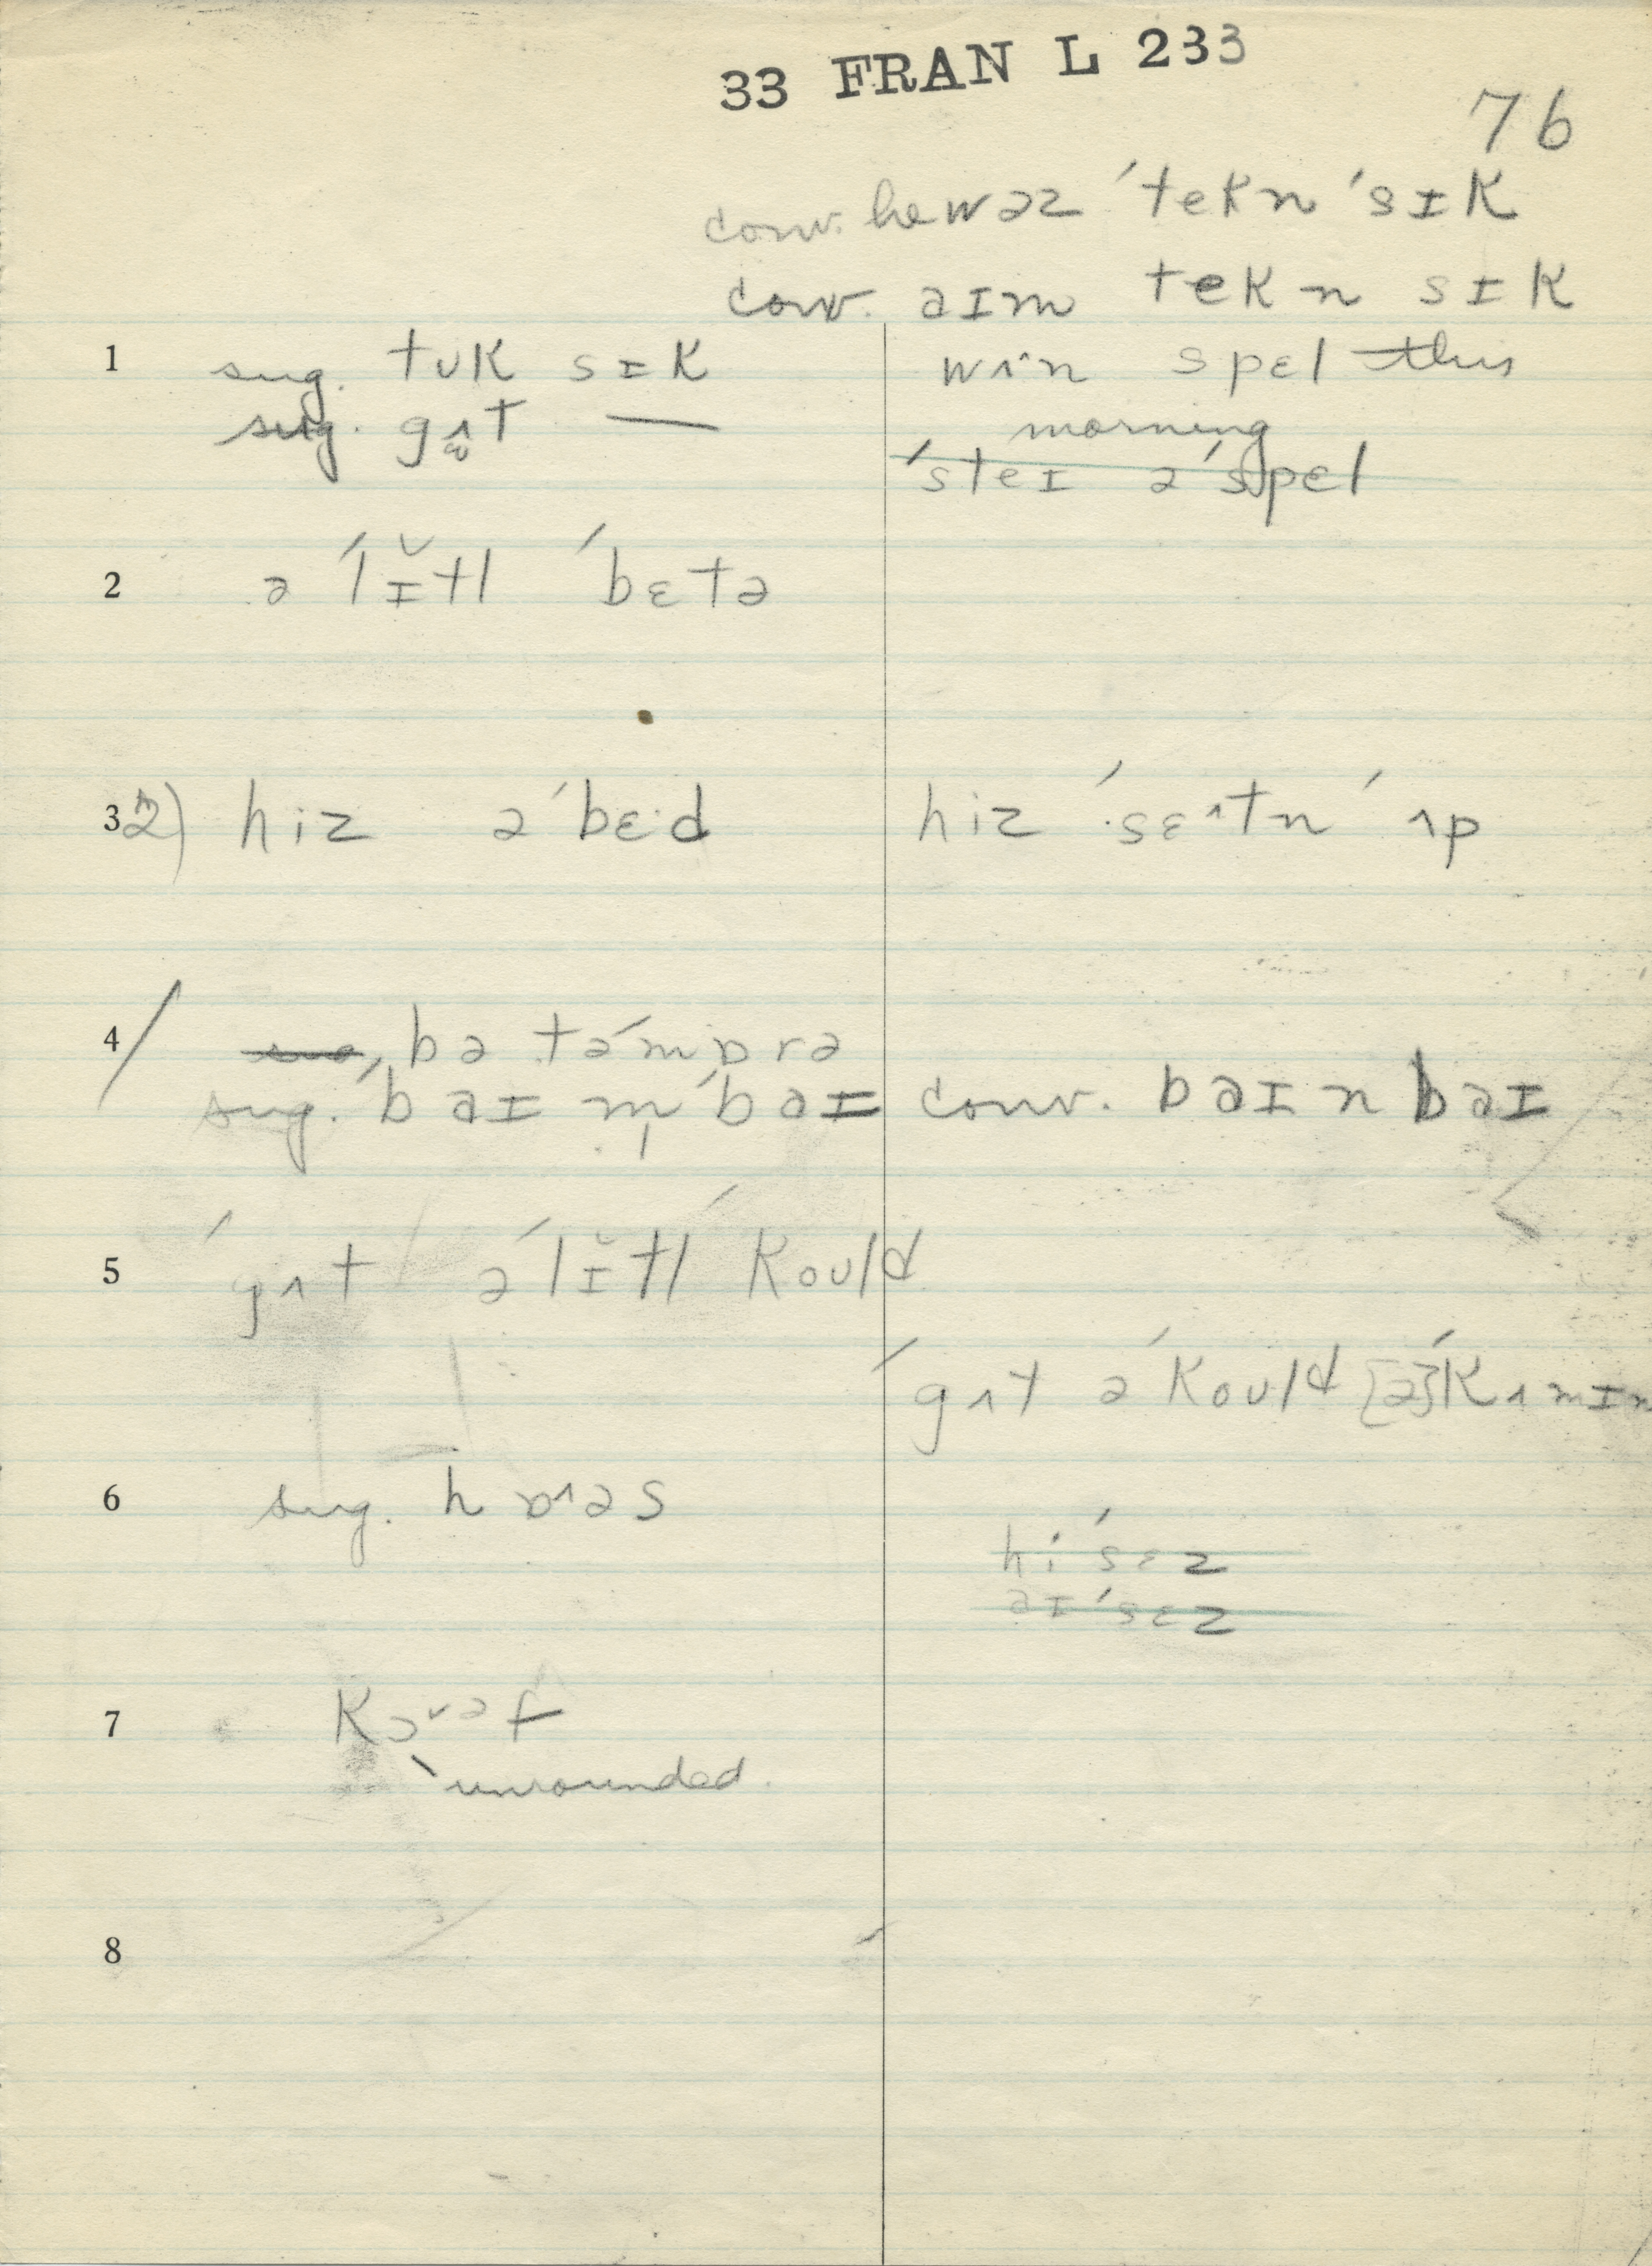 33 FRAN L 233
76
conv. he wəz ˈtekn ˈsɪk
conv. aɪm tekn sɪk
1 sug. tʊk sɪk wʌn spɛl this
sug. gʌt — morning
ˈsteɪ əˈspɛl
2 ə ˈlɪ̆tl ˈbɛtə
3 2) hiz əˈbɛ·d hiz ˈsɛ^tn ˈʌp
4 bə təˈmɒrə
sug. ˈbaɪ m̩ ˈbaɪ conv. baɪ n baɪ
5 ˈgʌt ə ˈlɪ̆tl ˈkoʊld
ˈgʌt ə ˈkoʊld [ə] ˈkʌmɪn
6 sug. hɒ^əs
hi ˈsɛz
aɪ ˈsɛz
7 kɔ˅əf
unrounded.
8